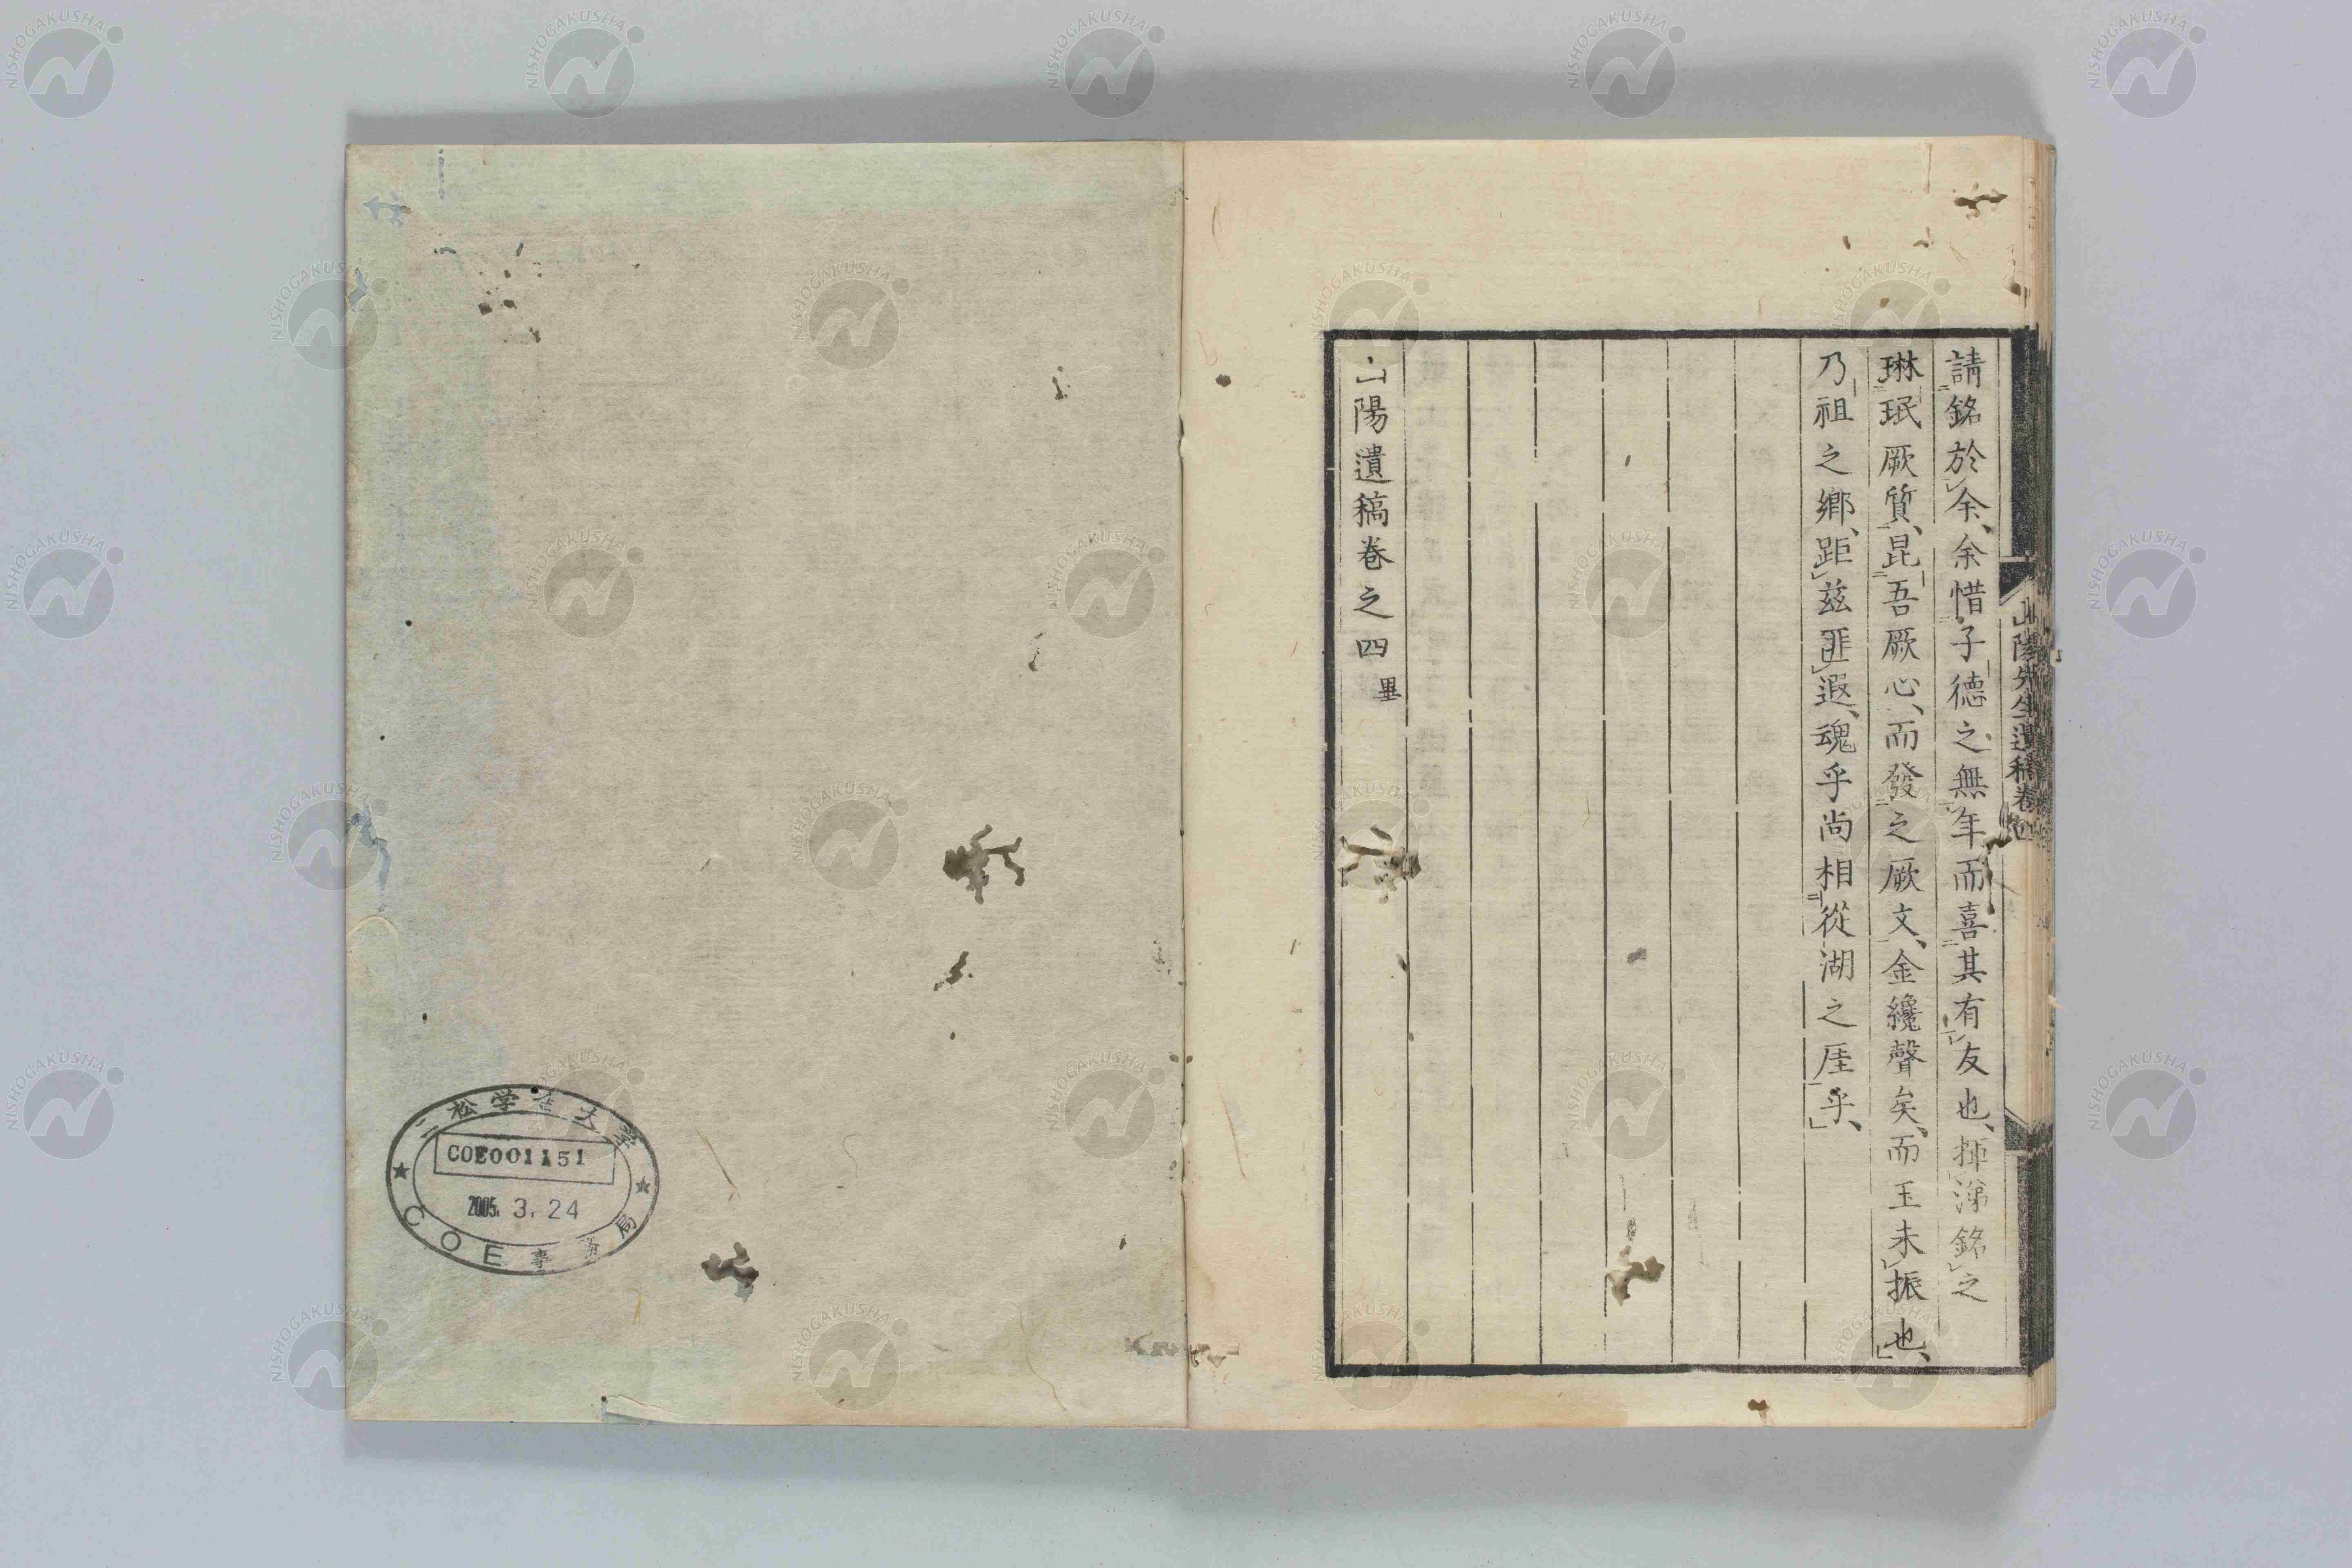 請銘於余、余惜子德之無年而喜其有友也、揮涕銘之
琳珉厥質、昆吾厥心、而發之厥文、金纔聲矣、而玉未振也、
乃祖之鄉、距茲匪遐、魂乎尚相從湖之厓乎、
山陽遺稿卷之四 畢
山陽先生遺稿卷四
二松学舎大学
COE001151
2005. 3. 24
COE事務局
NISHOGAKUSHA